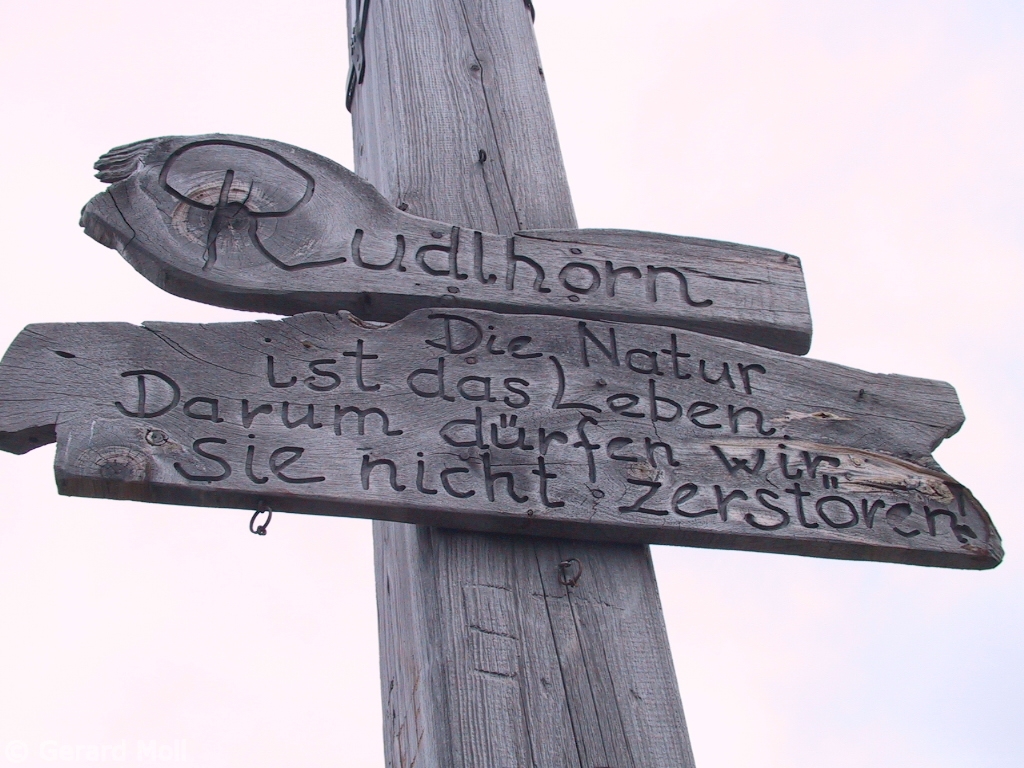 Rudlhörn
Die Natur
ist das Leben.
Darum dürfen wir
sie nicht zerstören!
© Gerard Moll